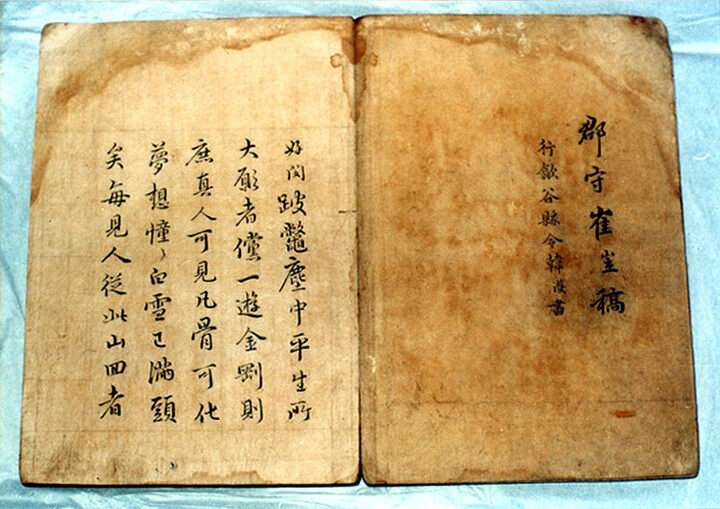 郡守崔岦稿
行歙谷縣令韓濩書
好跛鼈塵中平生所
大願者儻一遊金剛則
庶真人可見凡骨可化
夢想憧〻白雪已滿頭
矣每見人從此山回者